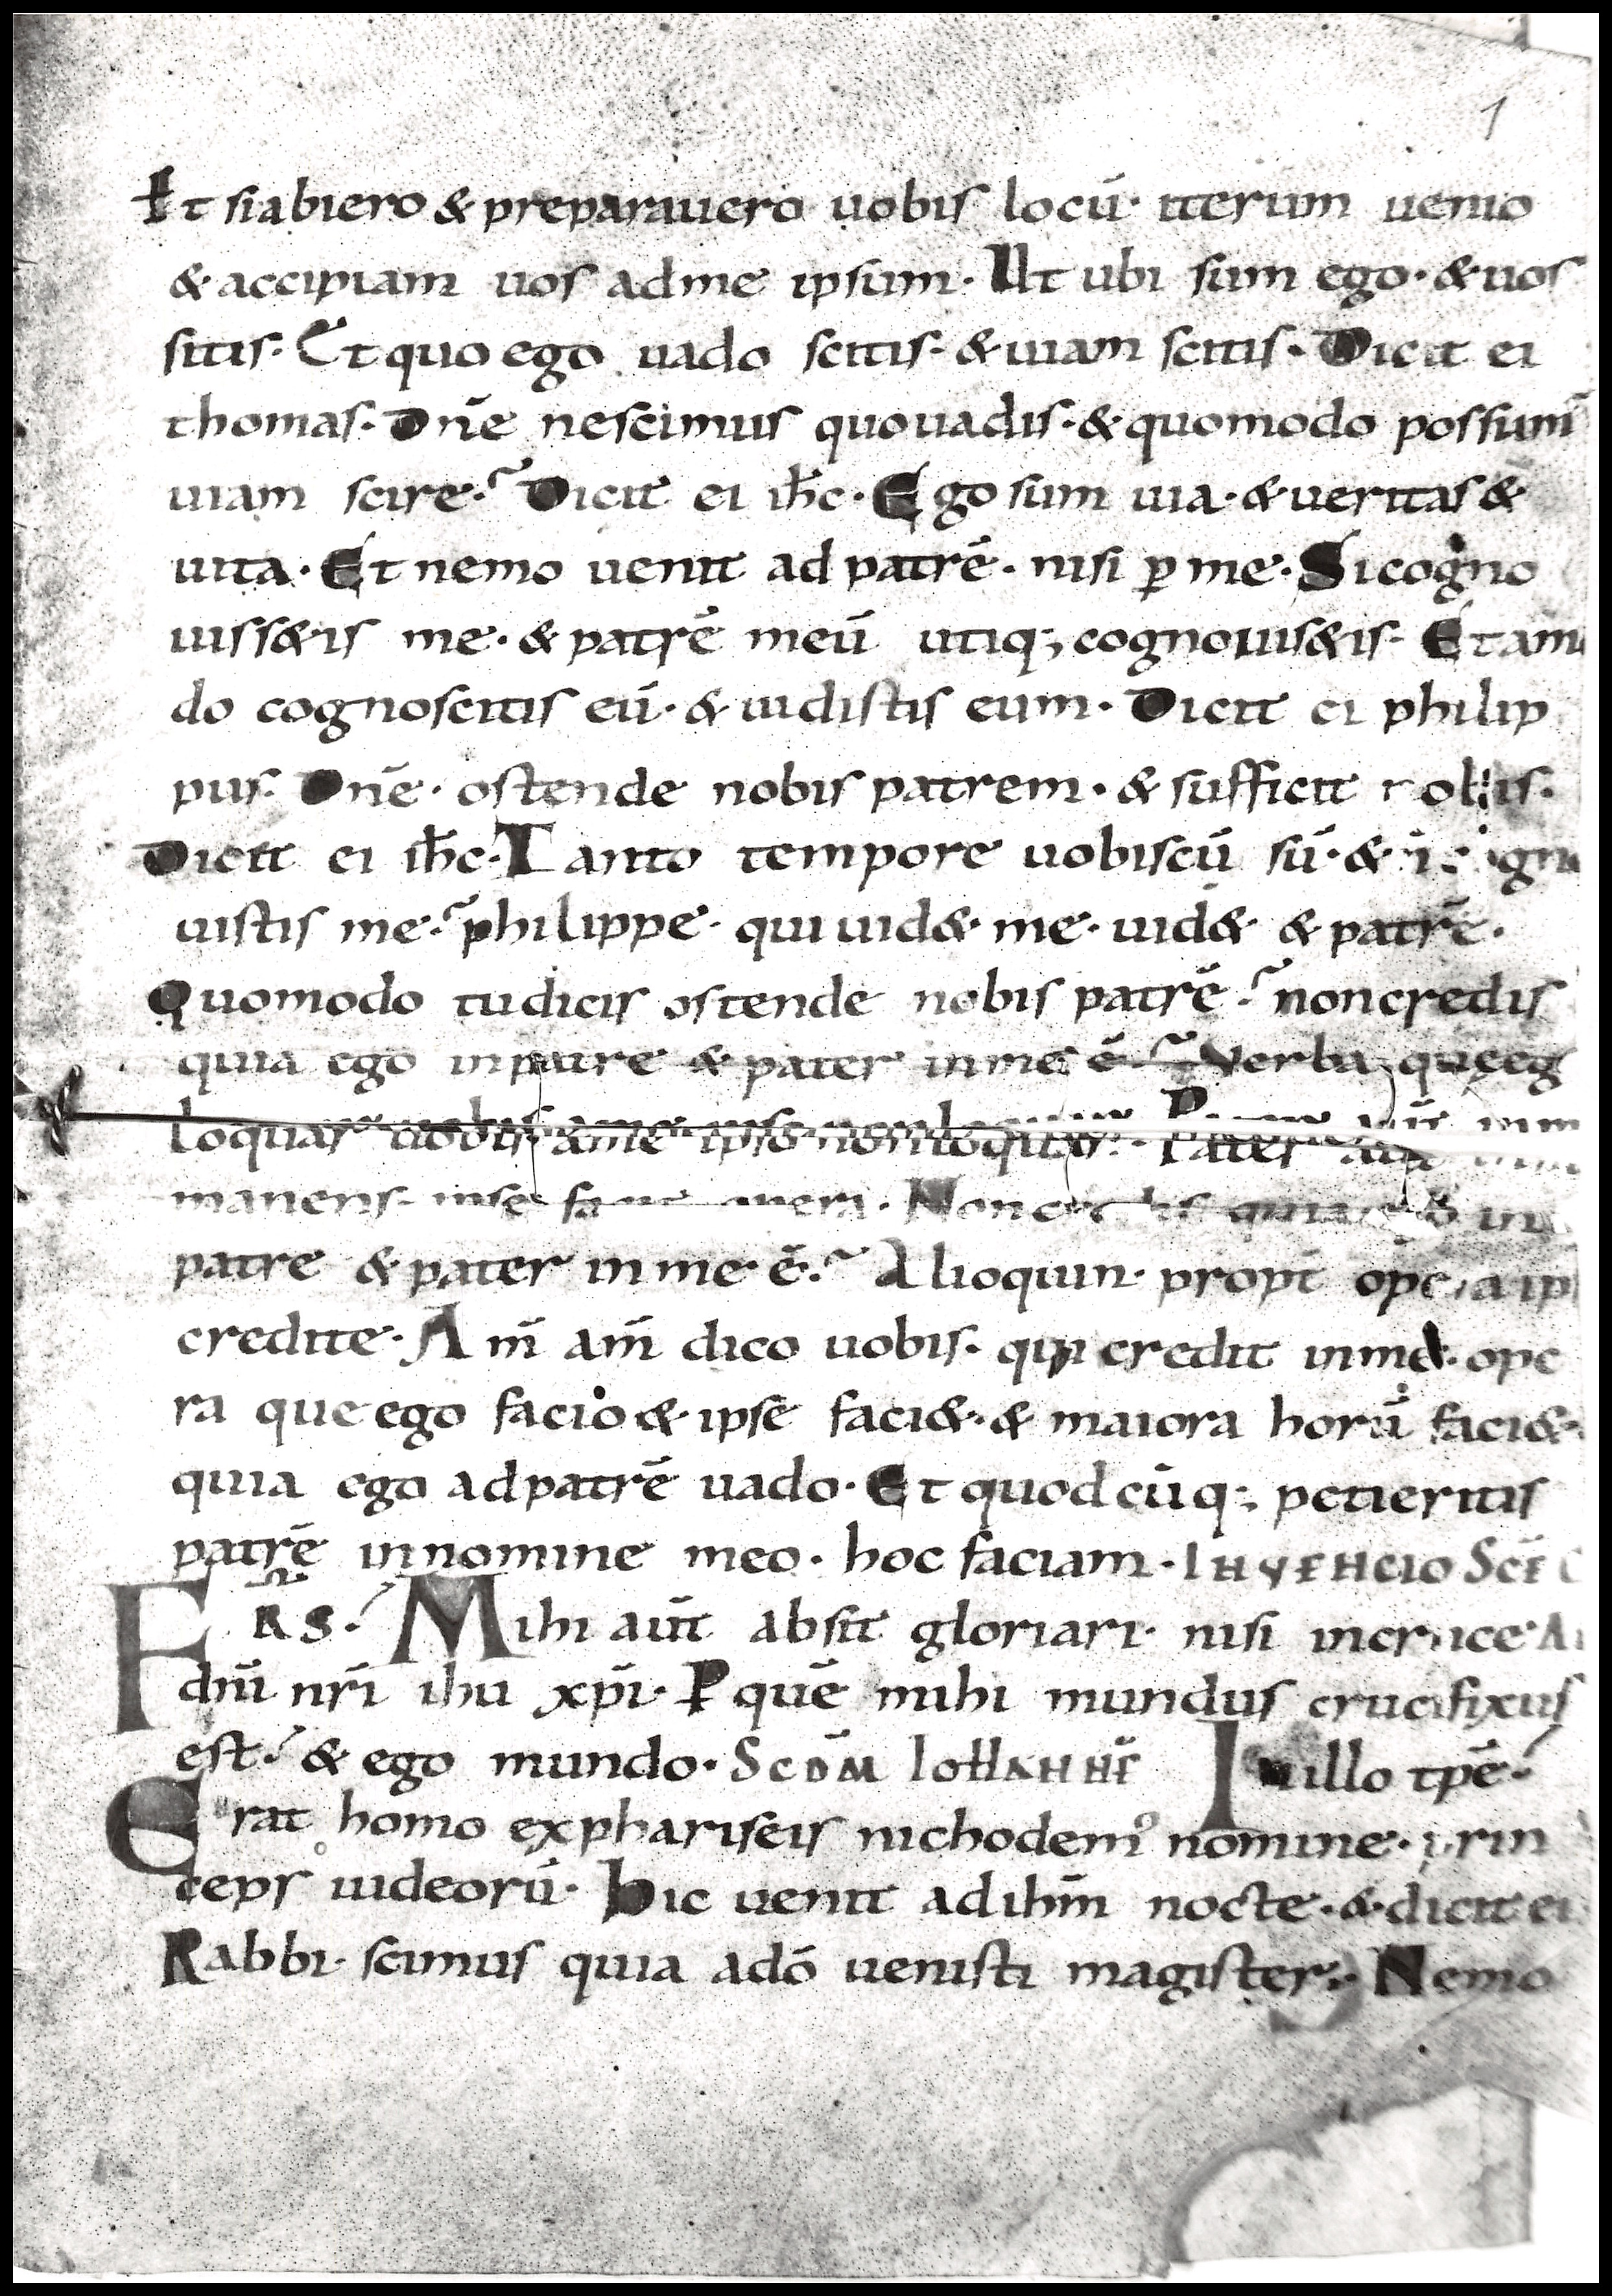 1
Et siabiero & preparauero uobis locū· iterum uenio
& accipiam uos adme ipsum· Ut ubi sum ego· & uos
sitis· Et quo ego uado scitis· & uiam scitis· Dicit ei
thomas· Dn̄e nescimus quouadis· & quomodo possum̄
uiam scire? Dicit ei ih̄c· Ego sum uia· & ueritas &
uita· Et nemo uenit ad patrē· nisi ꝑ me· Sicogno
uiss&is me· & patrē meū utiq; cognouis&is· Et amo
do cognoscitis eū· & uidistis eum· Dicit ei philip
pus· Dn̄e· ostende nobis patrem· & sufficit nobis·
Dicit ei ih̄c· Tanto tempore uobiscū sū· &
uistis me? philippe· qui uid& me· uid& & patrē·
Quomodo tudicis ostende nobis patrē? noncredis
quia ego inpatre & pater inme ē? Verba quęeg
loquar uobis· ame ipso nonloquor· Pater aūt
manens· ipse opera· Non quia ego in
patre & pater inme ē? Alioquin· propt̄ opera ip
credite· Am̄ am̄ dico uobis· qui credit inme· ope
ra que ego facio & ipse faci&· & maiora horū faci&·
quia ego adpatrē uado· Et quodcūq; petieritis
patrē innomine meo· hoc faciam· INVENCIO SCĒ C
FRS̄? Mihi aūt absit gloriari· nisi incruce
dn̄i nr̄i ihu xp̄i· P quē mihi mundus crucifixus
est? & ego mundo· SCDM̄ IOHANNĒ Inillo tp̄e?
Erat homo expharıseis nichodemꝰ nomine· prin
ceps iudeorū· Hic uenit ad ihm̄ nocte· & dicit ei
Rabbi· scimus quia adō uenisti magister· Nemo